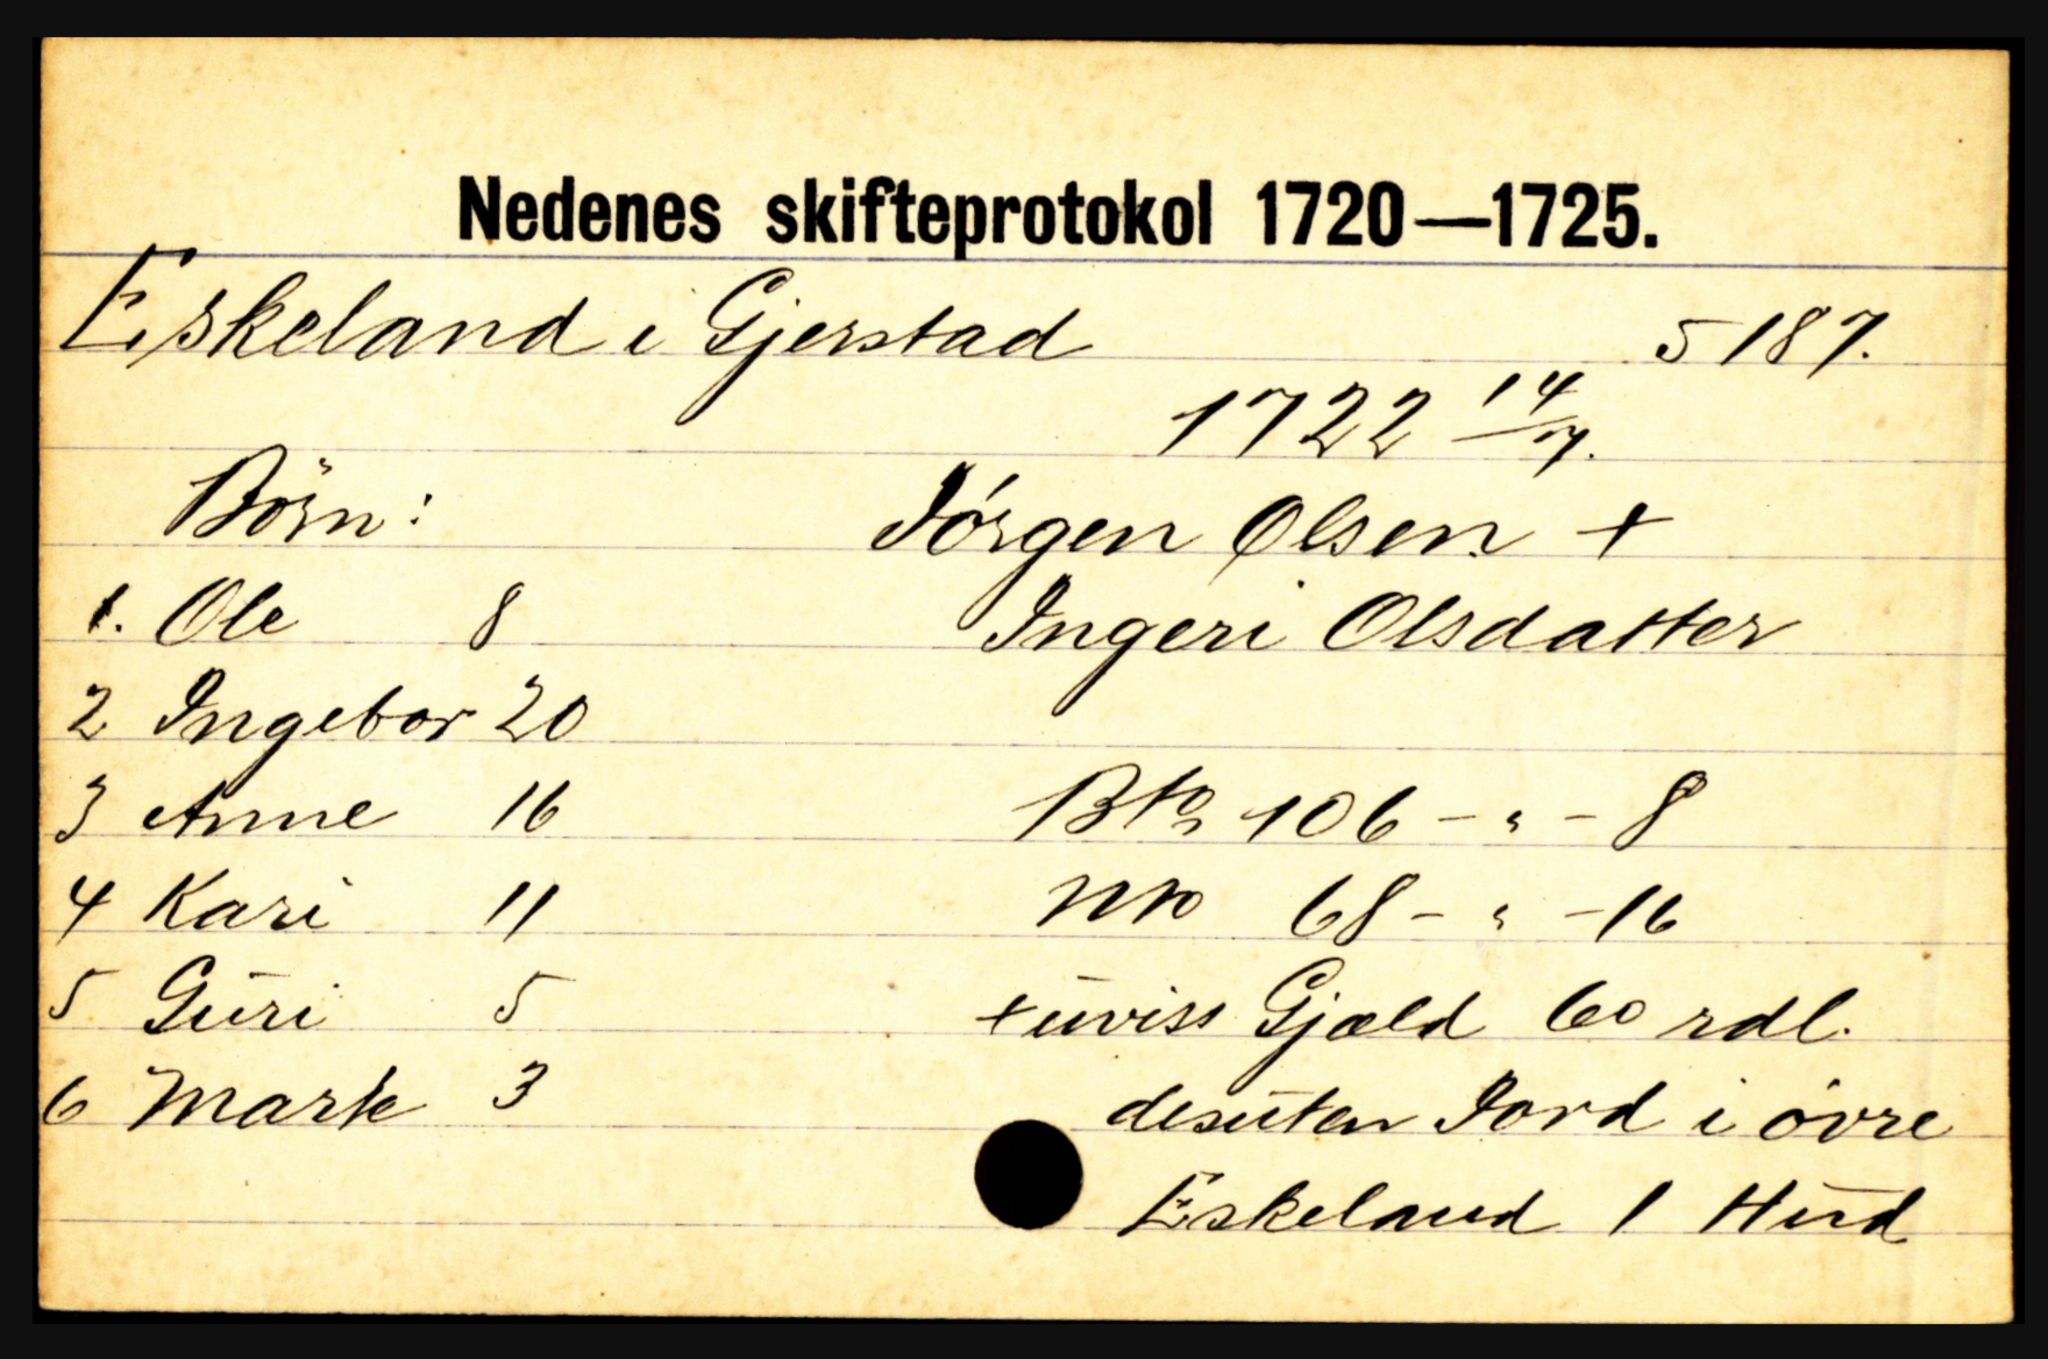 Nedenes skifteprotokol 1720—1725.
Eskeland i Gjerstad 5 187.
1722 14/7.
Børn: Jörgen Olsen +
1. Ole 8 Ingeri Olsdatter
2 Ingebor 20
3 Anne 16 Bto 106 - " - 8
4 Kari 11 Nto 68 - " - 16
5 Guri 5 + uviss Gjæld 60 rdl.
6 Marte 3 desuten Jord i øvre
Eskeland 1 Hud